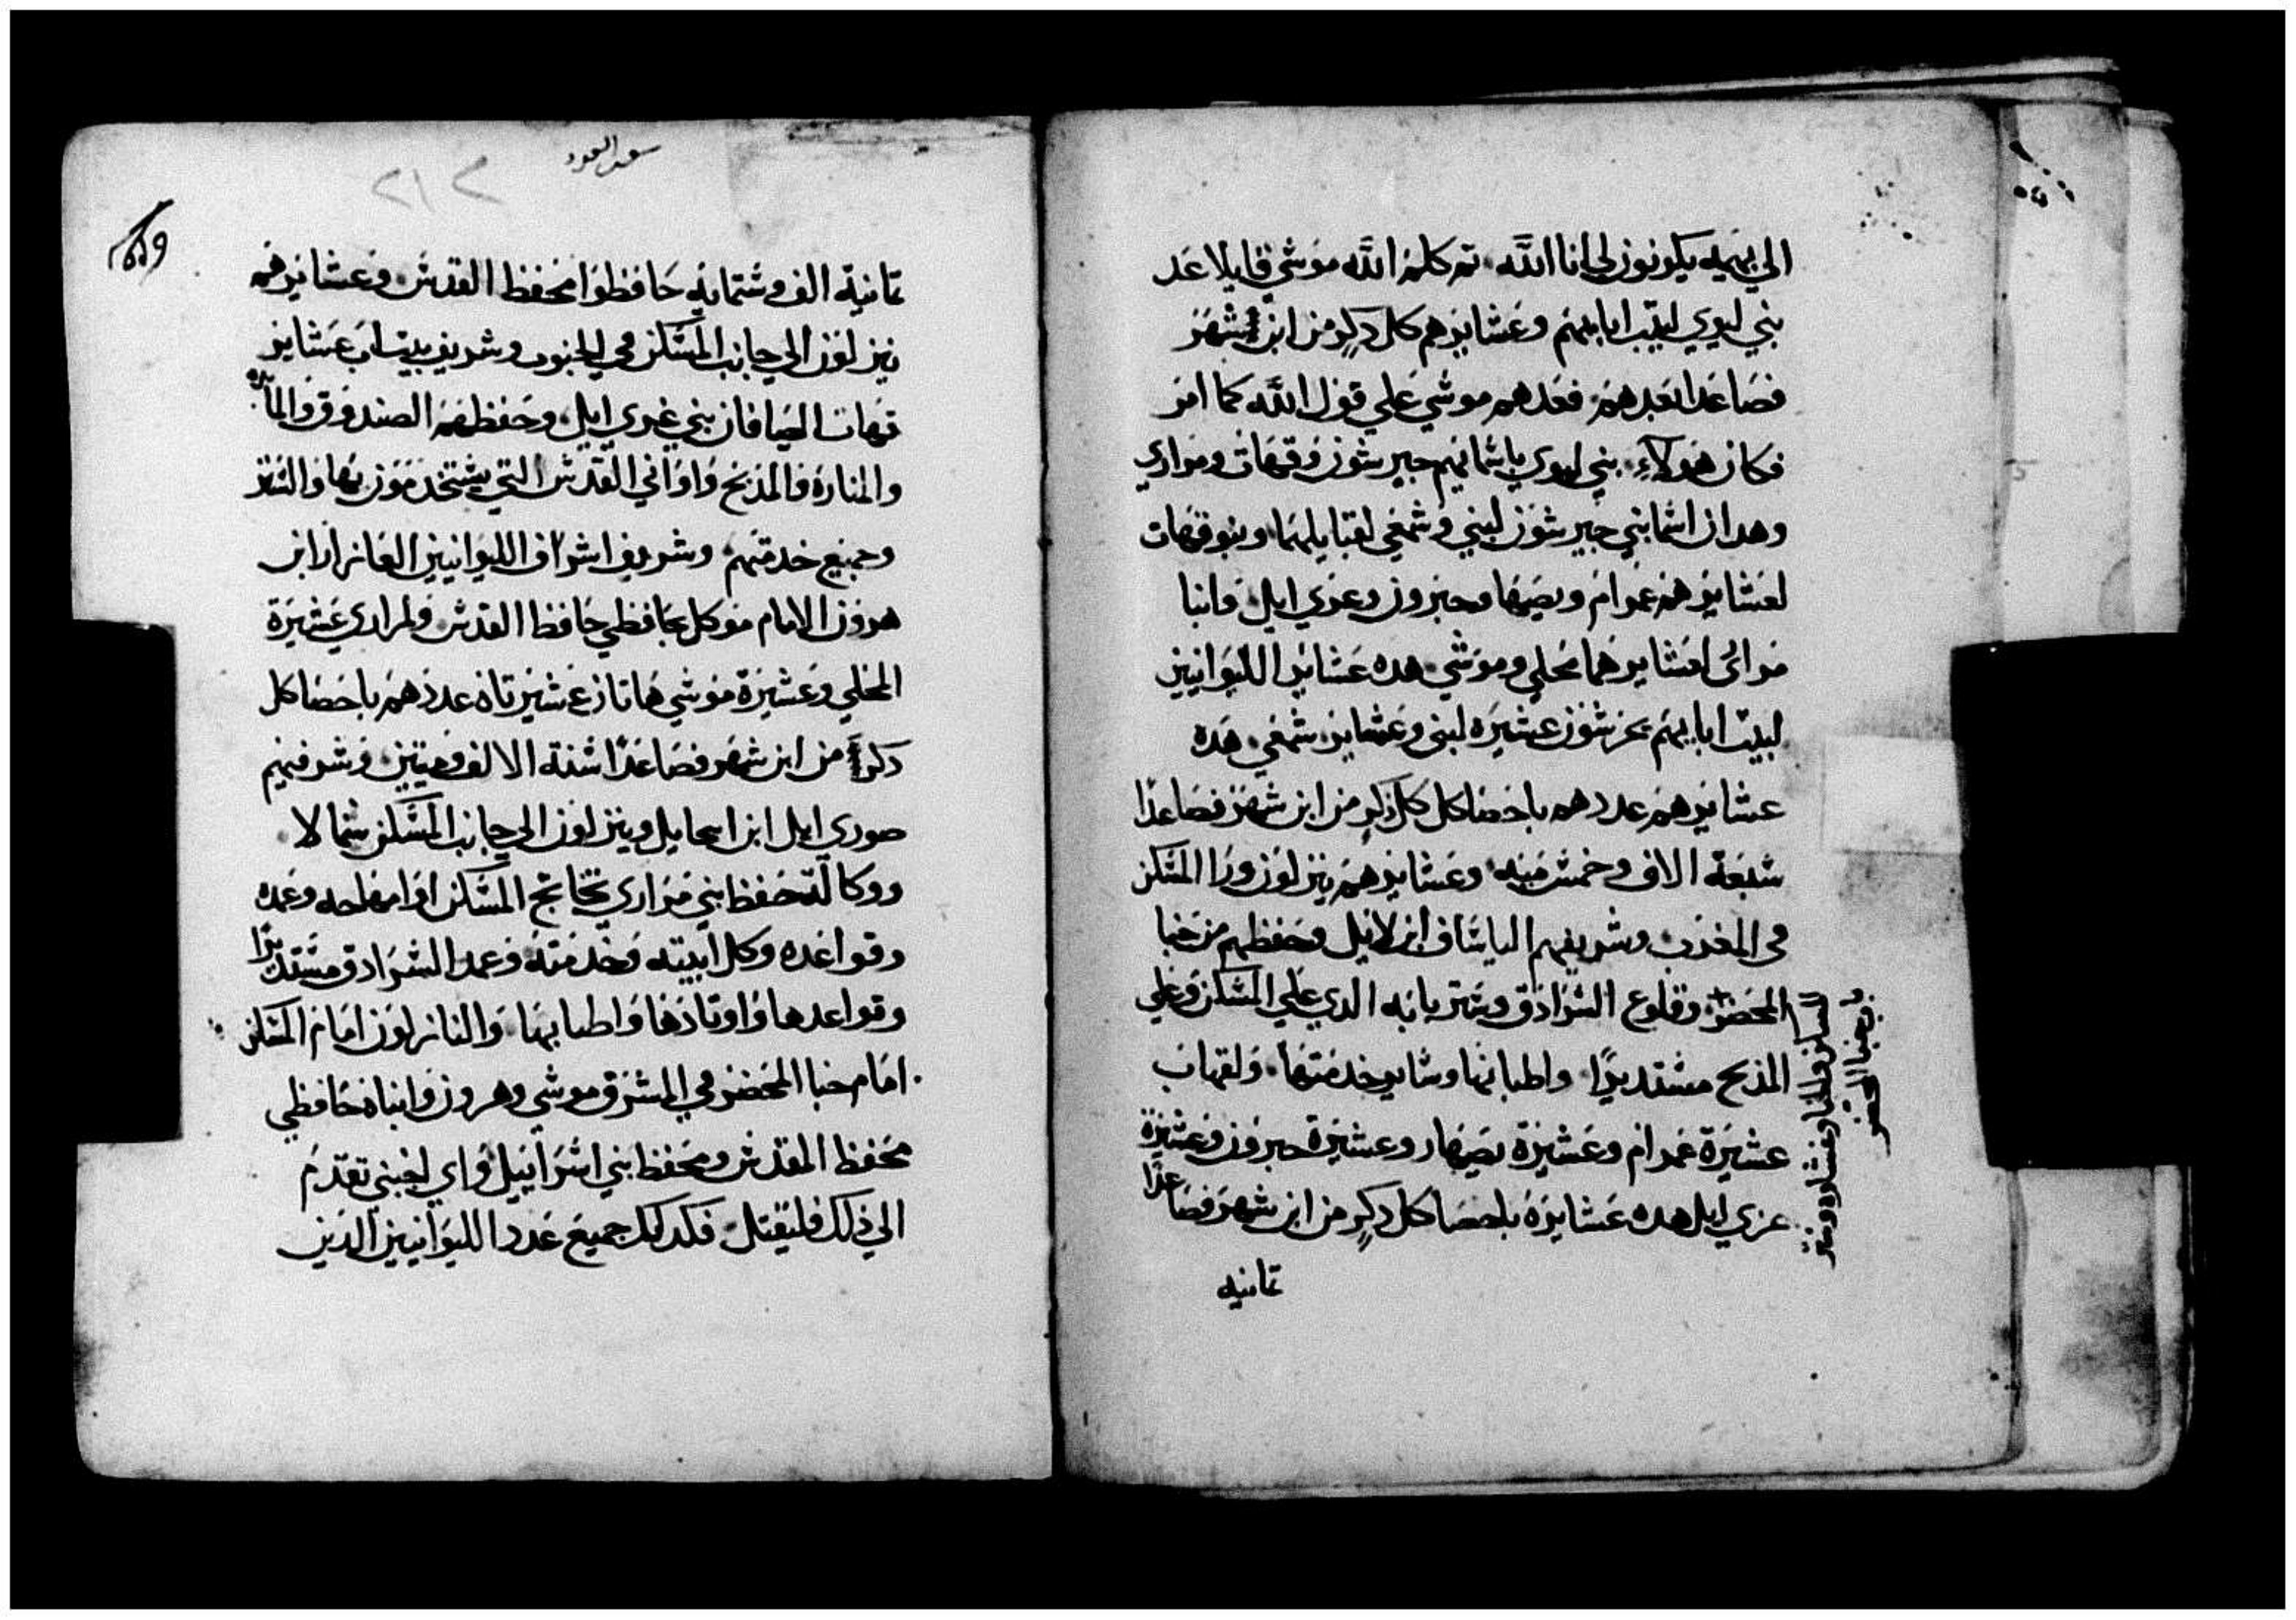 الي بهيمه يكونون لي انا الله، تم كلم الله موسي قايلا عد
بني ليوي لبيت ابايهم وعشايرهم كل دكر من ابن شهر
فصاعدا تعدهم، فعدهم موسي علي قول الله كما امر
فكان هولاء، بني ليوي باسمايهم جيرشون وقهات ومراري
وهدان اسما بني جيرشون لبني وشمعي لقبايلهما، وبنو قهات
لعشايرهم عمرام ويصهار وحبرون وعزي ايل، وابنا
مراري لعشايرهما محلي وموشي، هده عشاير الليوانيين
لبيت ابايهم، جرشون عشيرة لبني وعشاير شمعي، هده
عشايرهم عددهم باحصا كل كل ذكر من ابن شهر فصاعدا
سبعة الاف وخمس ميه، وعشايرهم ينزلون ورا المسكن
في المغرب، وشريفهم الياساف ابن لايل وحفظهم من خبا
المحضر + وقلوع السرادق وستر بابه الدي علي المسكن وعلي
المدبح مستديرا، واطنابها وساير خدمتها، ولقهات
عشيرة عمرام وعشيرة يصهار وعشيرة حبرون وعشيرة
عزي ايل هده عشايره باحصا كل دكر من ابن شهر فصاعدا
تمانيه
باب خبا المحضر
سعد السعود
٢١٢
تمانية الف وستمايه حافظوا محفظ القدس، وعشايرهم
ينزلون الي جانب المسكن في الجنوب وشريف بيت اب عشاير
قهات اليصافان بني عزي ايل، وحفظهم الصندوق والمايده
والمناره والمذبح واواني القدس التي يستخدمون بها والستر
وجميع خدمتهم، وشريف اشراف الليوانيين العازار ابن
هرون الامام موكل بحافظي حافظ القدس، ولمراري عشيرة
المحلي وعشيرة موشي هاتان عشيرتاه عددهم باحصا كل
دكر من ابن شهر فصاعدا ستة الالف وميتين، وشرفهم
صوري ايل ابن ابيحايل وينزلون الي جانب المسكن شمالا،
ووكالة حفظ بني مراري تختاتج المسكن اوا معلاحه وعمده
وقواعده وكل انيته وخدمته وعمد السرادق مستديرا
وقواعدها واوتادها واطنابها، والنازلون امام المسكن
امام خبا المحضر في المشرق موسي وهرون وابناه حافظي
محفظ المقدس ومحفظ بني اسراييل واي اجنبي تقدم
الي ذلك فليقتل، فكدلك جميع عدد الليوانيين الدين